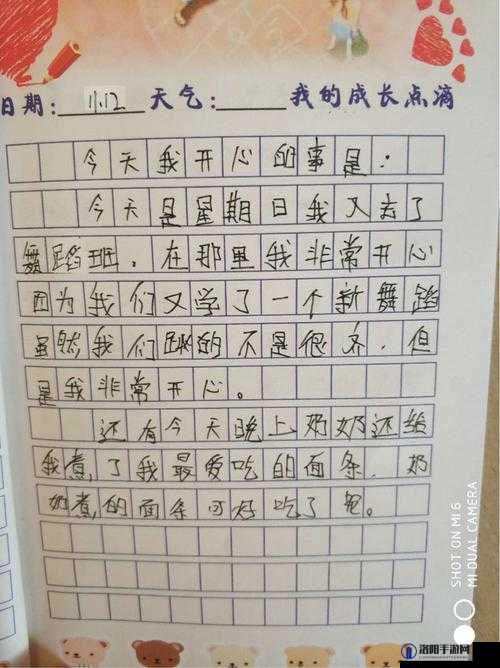 日期：11.12 天气：____ 我的成长点滴
今天我开心的事是：
今天是星期日我又去了
舞蹈班，在那里我非常开心
因为我们又学了一个新舞蹈
虽然我们跳的不是很齐，但
是我非常开心。
还有今天晚上，奶奶还给
我煮了我最爱吃的面条，奶
奶煮的面条可好吃了
SHOT ON MI 6
MI DUAL CAMERA
洛阳手游网